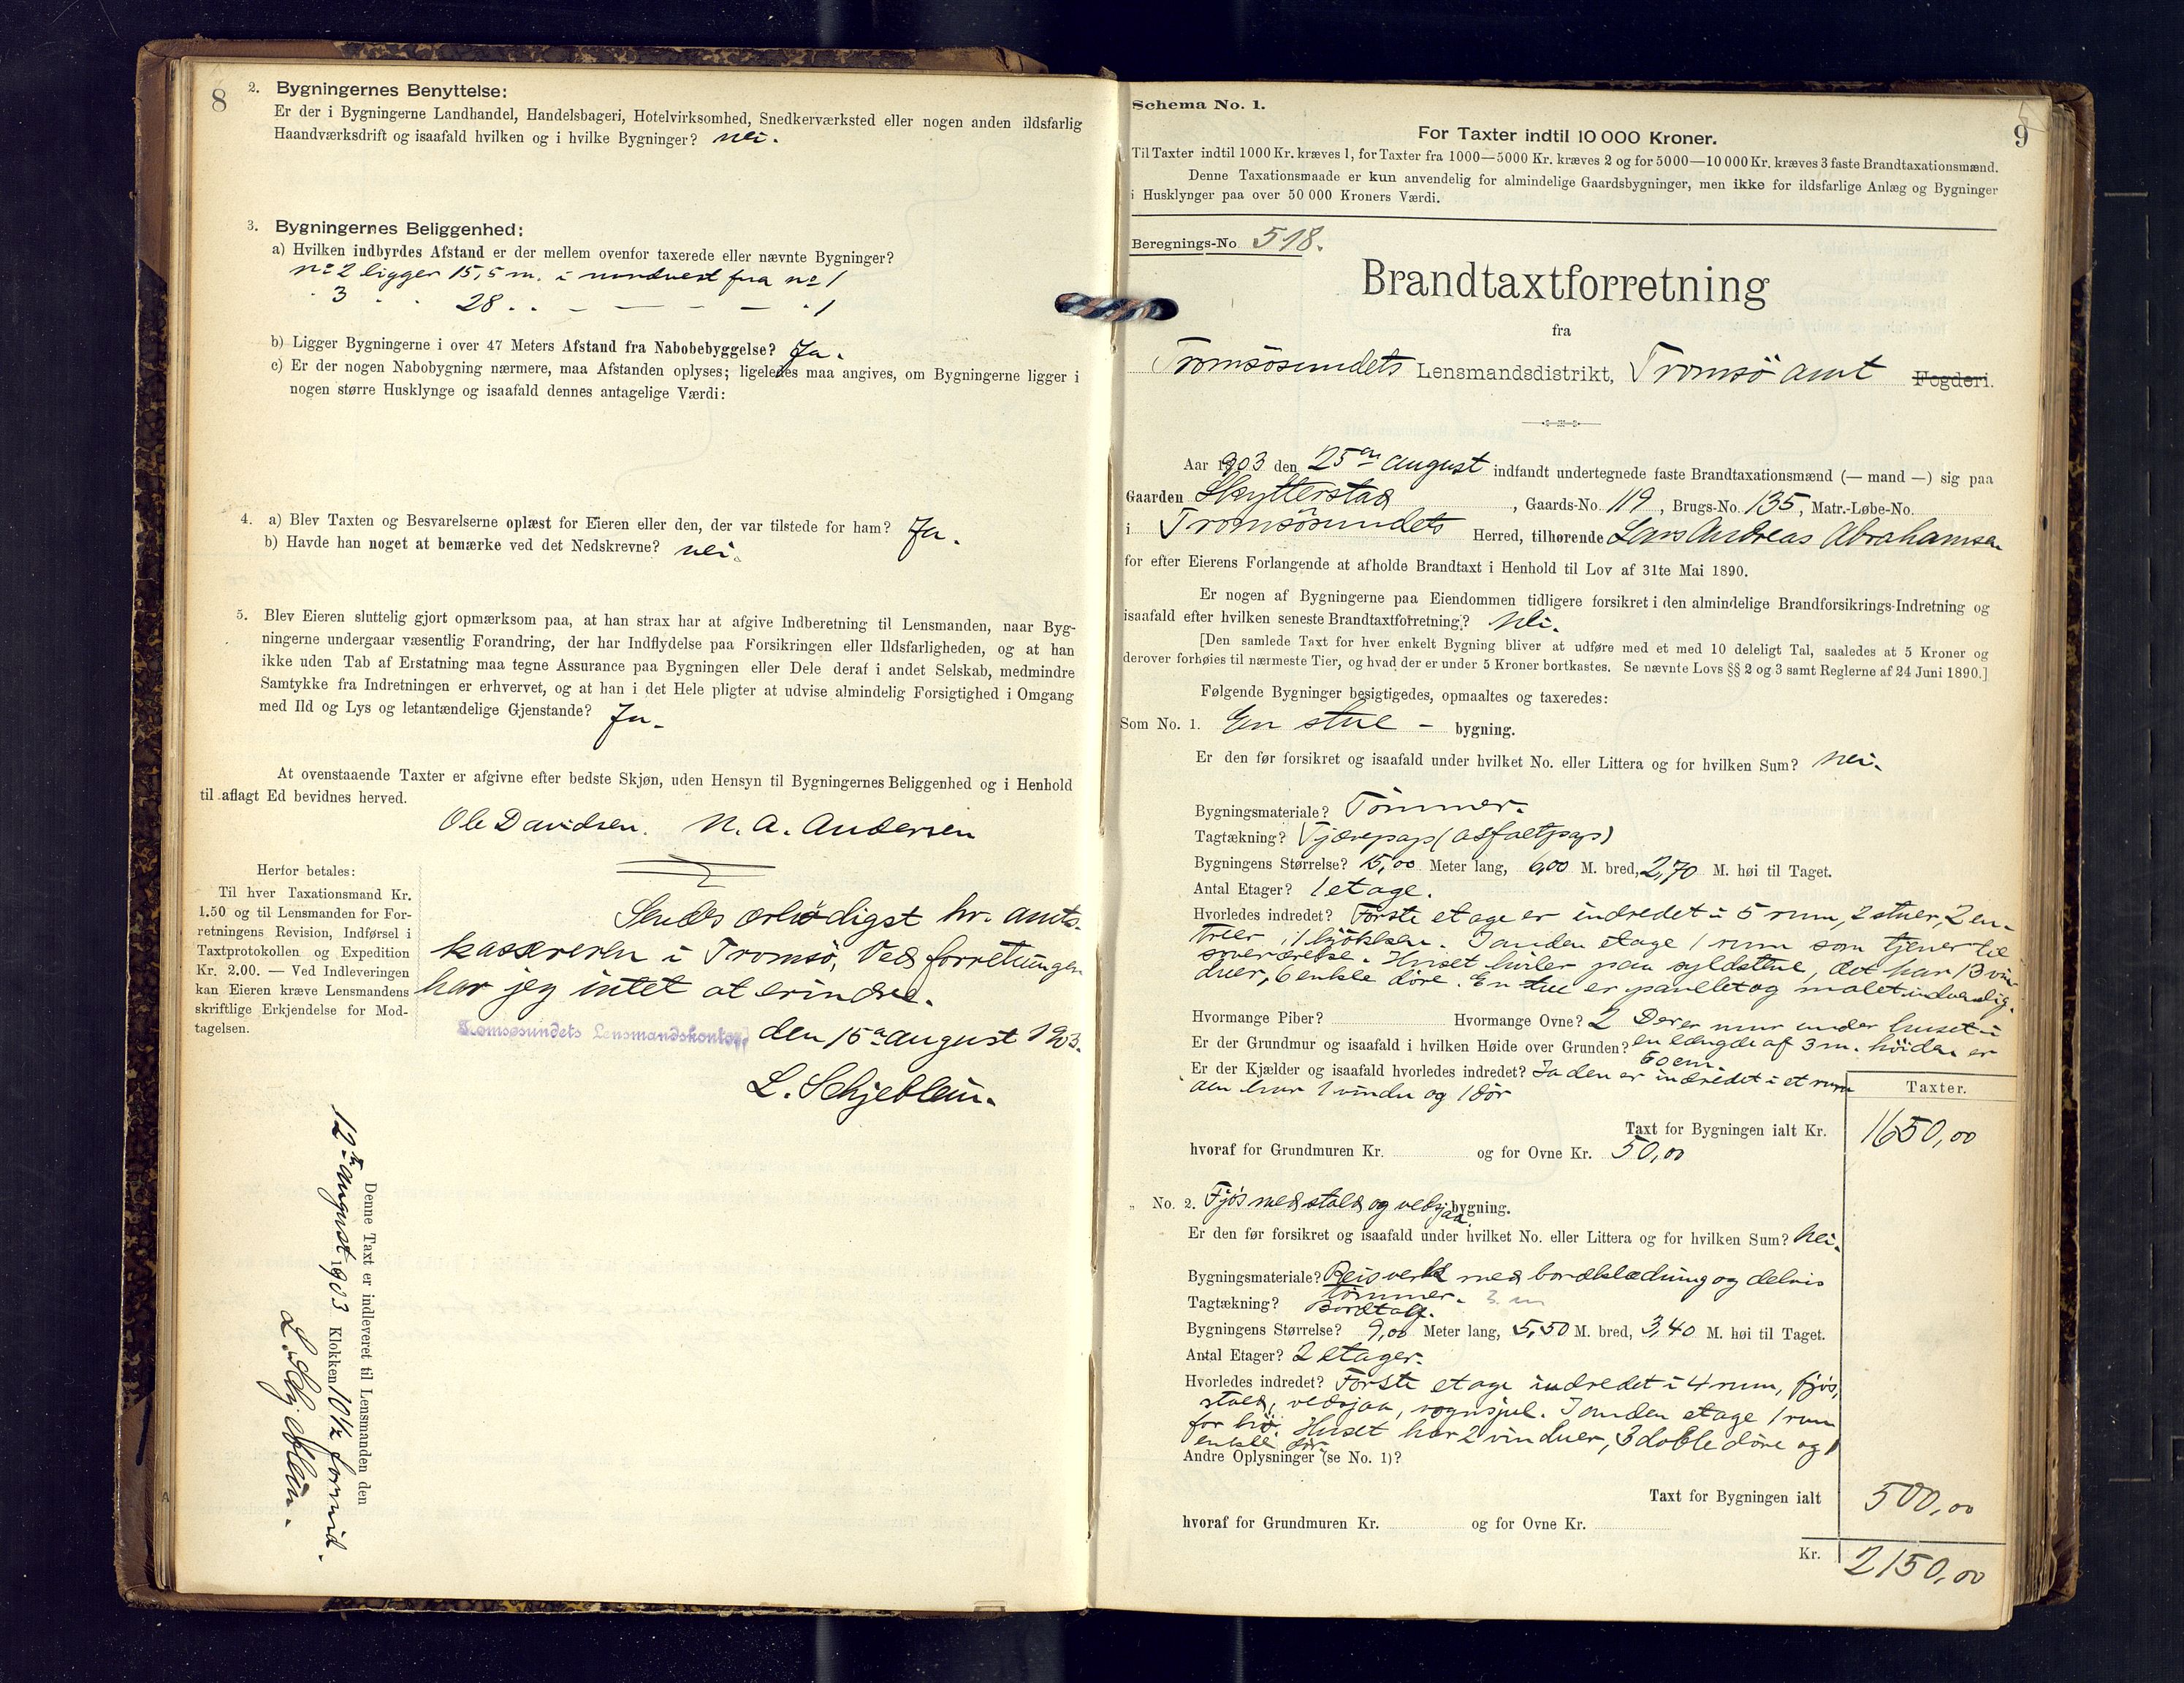 8
2. Bygningernes Benyttelse:
Er der i Bygningerne Landhandel, Handelsbageri, Hotelvirksomhed, Snedkerværksted eller nogen anden ildsfarlig
Haandværksdrift og isaafald hvilken og i hvilke Bygninger? nei.
3. Bygningernes Beliggenhed:
a) Hvilken indbyrdes Afstand er der mellem ovenfor taxerede eller nævnte Bygninger?
no 2 ligger 15,5 m. i nordvest fra no 1
" 3 " " 28 " " — — — — " 1
b) Ligger Bygningerne i over 47 Meters Afstand fra Nabobebyggelse? Ja.
c) Er der nogen Nabobygning nærmere, maa Afstanden oplyses; ligeledes maa angives, om Bygningerne ligger i
nogen større Husklynge og isaafald dennes antagelige Værdi:
4. a) Blev Taxten og Besvarelserne oplæst for Eieren eller den, der var tilstede for ham? Ja.
b) Havde han noget at bemærke ved det Nedskrevne? nei.
5. Blev Eieren sluttelig gjort opmærksom paa, at han strax har at afgive Indberetning til Lensmanden, naar Byg-
ningerne undergaar væsentlig Forandring, der har Indflydelse paa Forsikringen eller Ildsfarligheden, og at han
ikke uden Tab af Erstatning maa tegne Assurance paa Bygningen eller Dele deraf i andet Selskab, medmindre
Samtykke fra Indretningen er erhvervet, og at han i det Hele pligter at udvise almindelig Forsigtighed i Omgang
med Ild og Lys og letantændelige Gjenstande? Ja.
At ovenstaaende Taxter er afgivne efter bedste Skjøn, uden Hensyn til Bygningernes Beliggenhed og i Henhold
til aflagt Ed bevidnes herved.
Ole Davidsen. N. A. Andersen
Herfor betales:
Til hver Taxationsmand Kr.
1.50 og til Lensmanden for For-
retningens Revision, Indførsel i
Taxtprotokollen og Expedition
Kr. 2.00. — Ved Indleveringen
kan Eieren kræve Lensmandens
skriftlige Erkjendelse for Mod-
tagelsen.
Sendes ærbødigst hr. amts-
kassereren i Tromsö, Ved forretningen
har jeg intet at erindre.
Tromsøsundets Lensmandskontor, den 15de august 1903.
L. Schjeblein.
Denne Taxt er indleveret til Lensmanden den
12te august 1903 Klokken 10 1/2 formid.
L. Schjeblein.
9
Schema No. 1.
For Taxter indtil 10 000 Kroner.
Til Taxter indtil 1000 Kr. kræves 1, for Taxter fra 1000—5000 Kr. kræves 2 og for 5000—10 000 Kr. kræves 3 faste Brandtaxationsmænd.
Denne Taxationsmaade er kun anvendelig for almindelige Gaardsbygninger, men ikke for ildsfarlige Anlæg og Bygninger
i Husklynger paa over 50 000 Kroners Værdi.
Beregnings-No 518.
Brandtaxtforretning
fra
Tromsösundets Lensmandsdistrikt, Tromsö amt Fogderi.
Aar 1903 den 25en august indfandt undertegnede faste Brandtaxationsmænd (— mand —) sig paa
Gaarden Skytterstad, Gaards-No. 119, Brugs-No. 135, Matr.-Løbe-No.
i Tromsösundets Herred, tilhørende Lars Andreas Abrahamsen
for efter Eierens Forlangende at afholde Brandtaxt i Henhold til Lov af 31te Mai 1890.
Er nogen af Bygningerne paa Eiendommen tidligere forsikret i den almindelige Brandforsikrings-Indretning og
isaafald efter hvilken seneste Brandtaxtforretning? Nei.
[Den samlede Taxt for hver enkelt Bygning bliver at udføre med et med 10 deleligt Tal, saaledes at 5 Kroner og
derover forhøies til nærmeste Tier, og hvad der er under 5 Kroner bortkastes. Se nævnte Lovs §§ 2 og 3 samt Reglerne af 24 Juni 1890.]
Følgende Bygninger besigtigedes, opmaaltes og taxeredes:
Som No. 1. En stue - bygning.
Er den før forsikret og isaafald under hvilket No. eller Littera og for hvilken Sum? nei.
Bygningsmateriale? Tömmer.
Tagtækning? Tjærepap (asfaltpap)
Bygningens Størrelse? 15,00 Meter lang, 6,00 M. bred, 2,70 M. høi til Taget.
Antal Etager? 1 etage.
Hvorledes indredet? Förste etage er indredet i 5 rum, 2 stuer, 2 en-
treer, 1 kjökken. I anden etage 1 rum som tjener til
soveværelse. Huset hviler paa syldstue, det har 13 vin-
duer, 6 enkle döre. En stue er panelet og malet indvendig.
Hvormange Piber? Hvormange Ovne? 2 Der er mur under huset i
Er der Grundmur og isaafald i hvilken Høide over Grunden? en længde af 3 m. höiden er
60 cm.
Er der Kjælder og isaafald hvorledes indredet? Ja den er indredet i et rum
den har 1 vindu og 1 dör
Taxter.
Taxt for Bygningen ialt Kr. 1650,00
hvoraf for Grundmuren Kr. og for Ovne Kr. 50,00
" No. 2. Fjös med stald og vedsjaa bygning.
Er den før forsikret og isaafald under hvilket No. eller Littera og for hvilken Sum? Nei.
Bygningsmateriale? Reisverk med bordklædning og delvis
tömmer.
Tagtækning? Bordtag.
Bygningens Størrelse? 9,00 Meter lang, 5,50 M. bred, 3,40 M. høi til Taget.
Antal Etager? 2 etager.
Hvorledes indredet? Förste etage indredet i 4 rum, fjös,
stald, vedsjaa, vognsjul. I anden etage 1 rum
for hö. Huset har 2 vinduer, 3 doble döre og 1
enkle dör.
Andre Oplysninger (se No. 1)?
Taxt for Bygningen ialt 500,00
hvoraf for Grundmuren Kr. og for Ovne Kr.
Kr. 2150,00